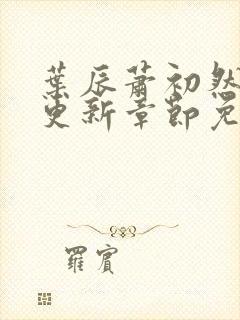 葉辰蕭初然
更新章節免
羅賓